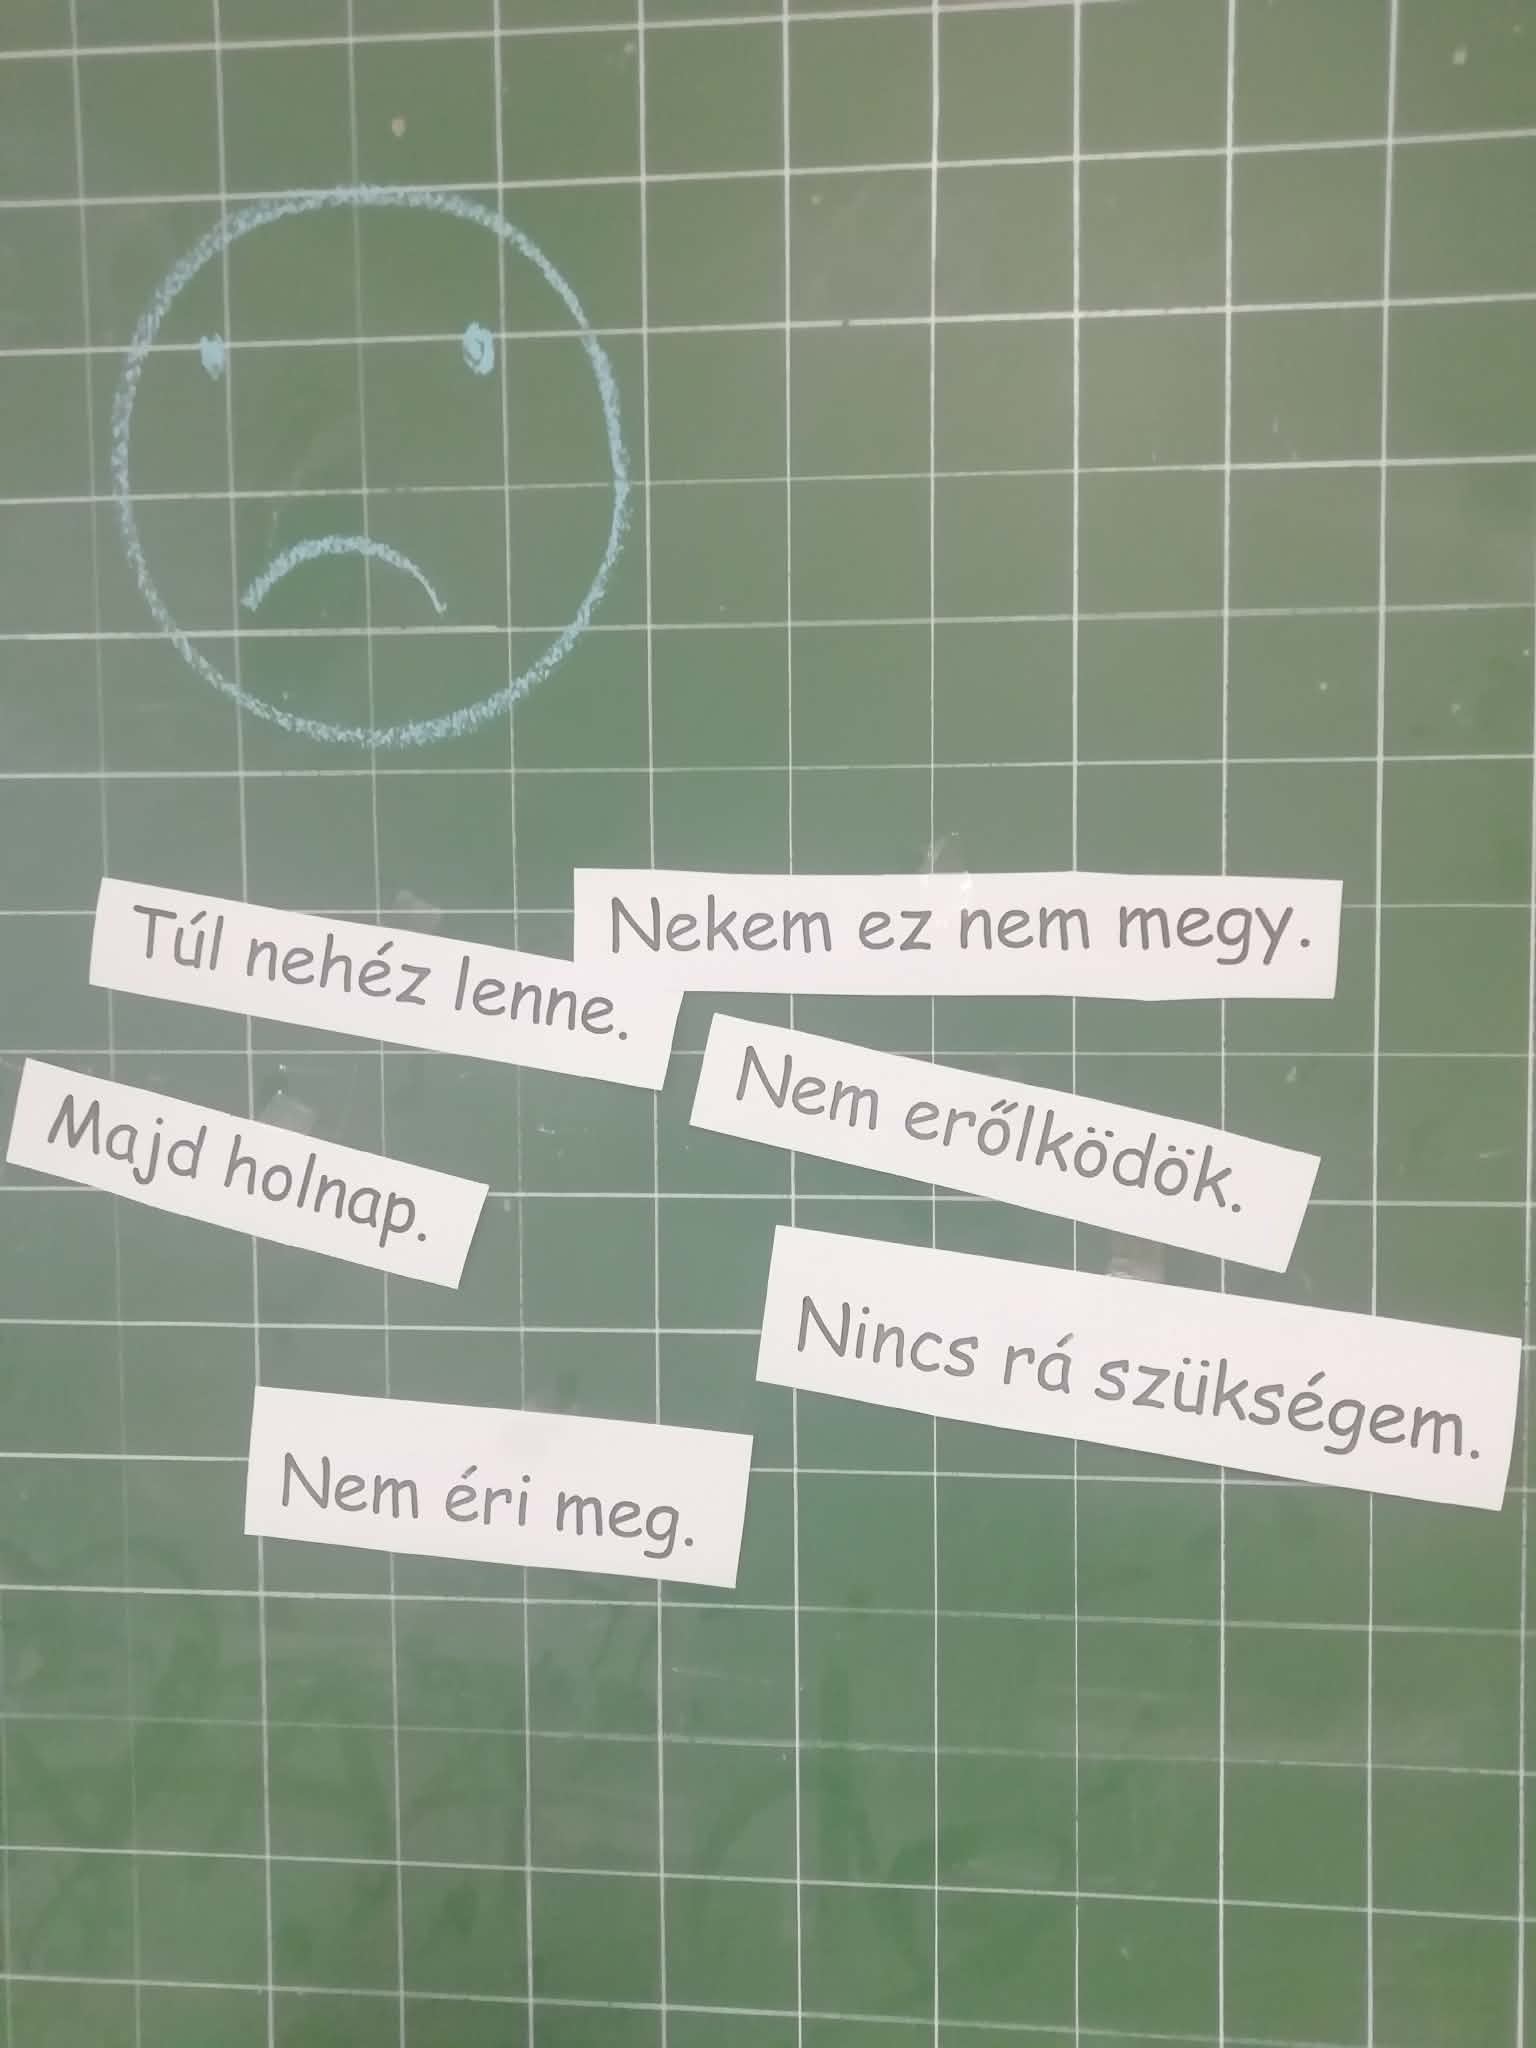 Túl nehéz lenne.
Nekem ez nem megy.
Majd holnap.
Nem erőlködök.
Nincs rá szükségem.
Nem éri meg.